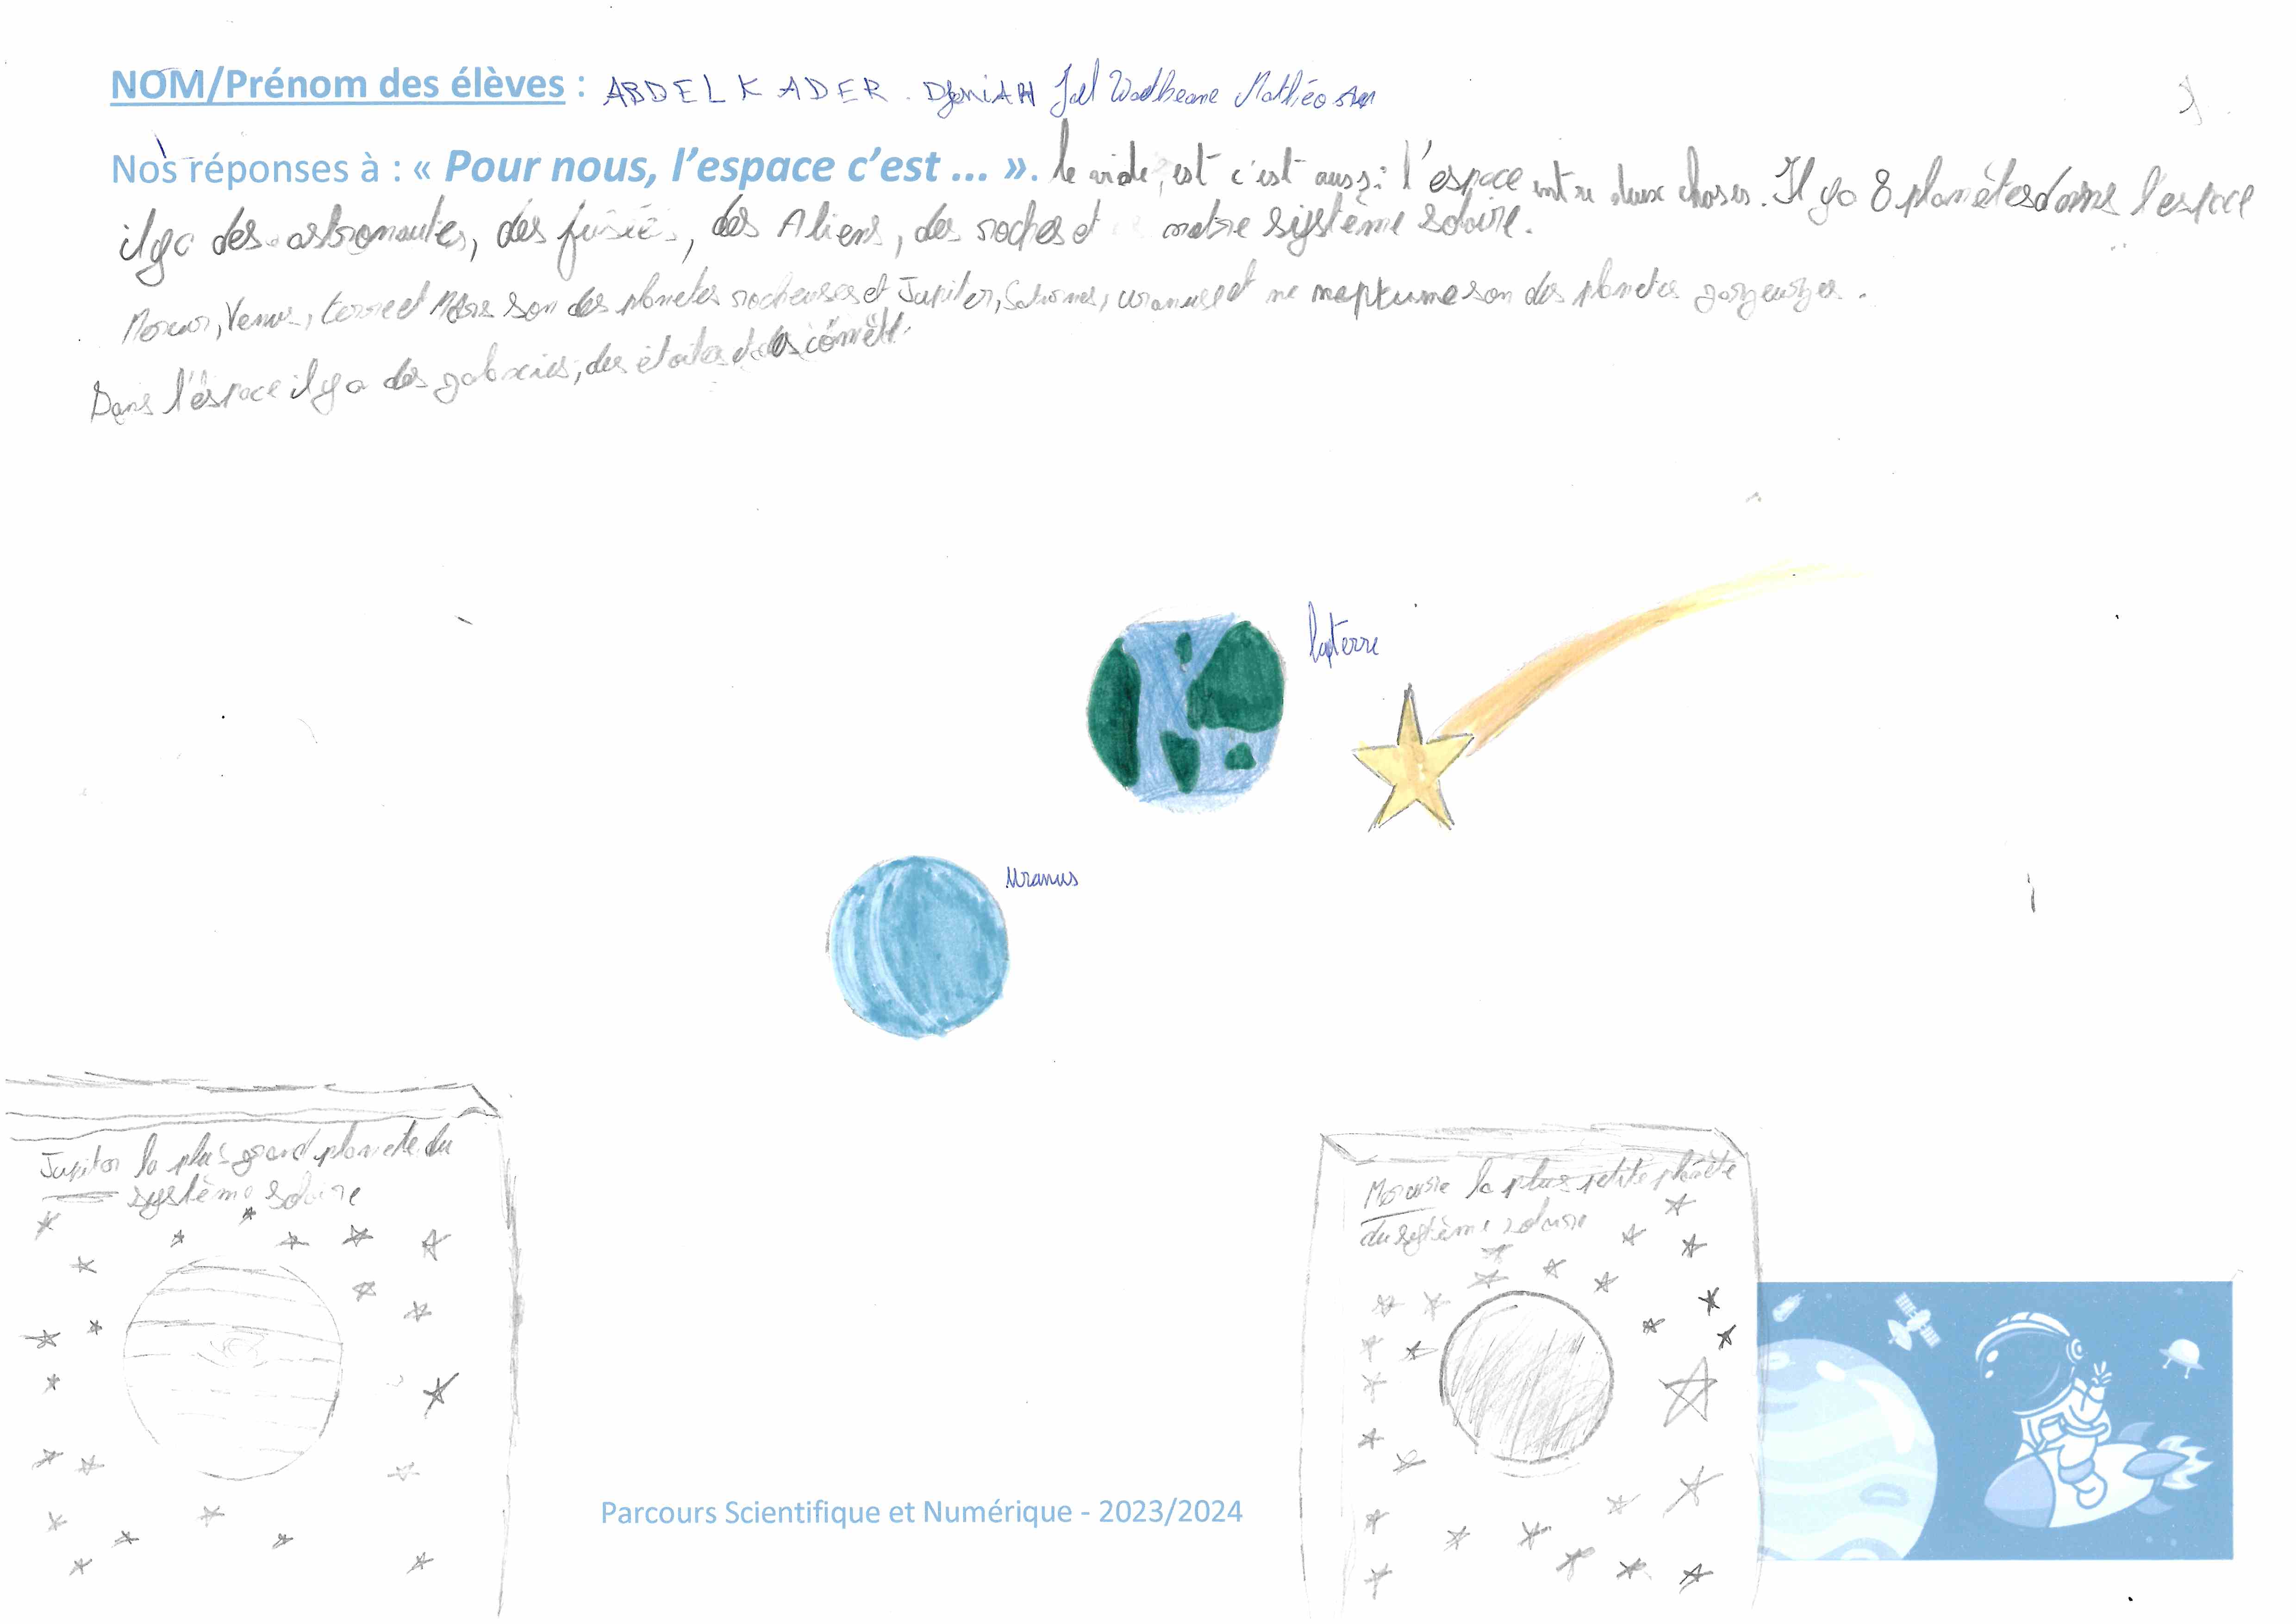 NOM/Prénom des élèves : ABDELKADER. Jael Mathéo
Nos réponses à : « Pour nous, l'espace c'est ... ». le vide, est c'est aussi l'espace entre deux choses. Il ya 8 planètes dans l'espace
il ya des astronautes, des fusées, des Aliens, des roches et notre système solaire.
Mercur, Venus, terre et Mars son des planetes rocheuses et Jupiter, Saturnes, uranus et ne neptune son des planetes gazeuzes.
Dans l'éspace il y a des galaxies, des étoiles et des cométt.
la terre
Uranus
Jupiter la plus grand planete du
système solaire
Mercure la plus petite planète
du système solaire
Parcours Scientifique et Numérique - 2023/2024